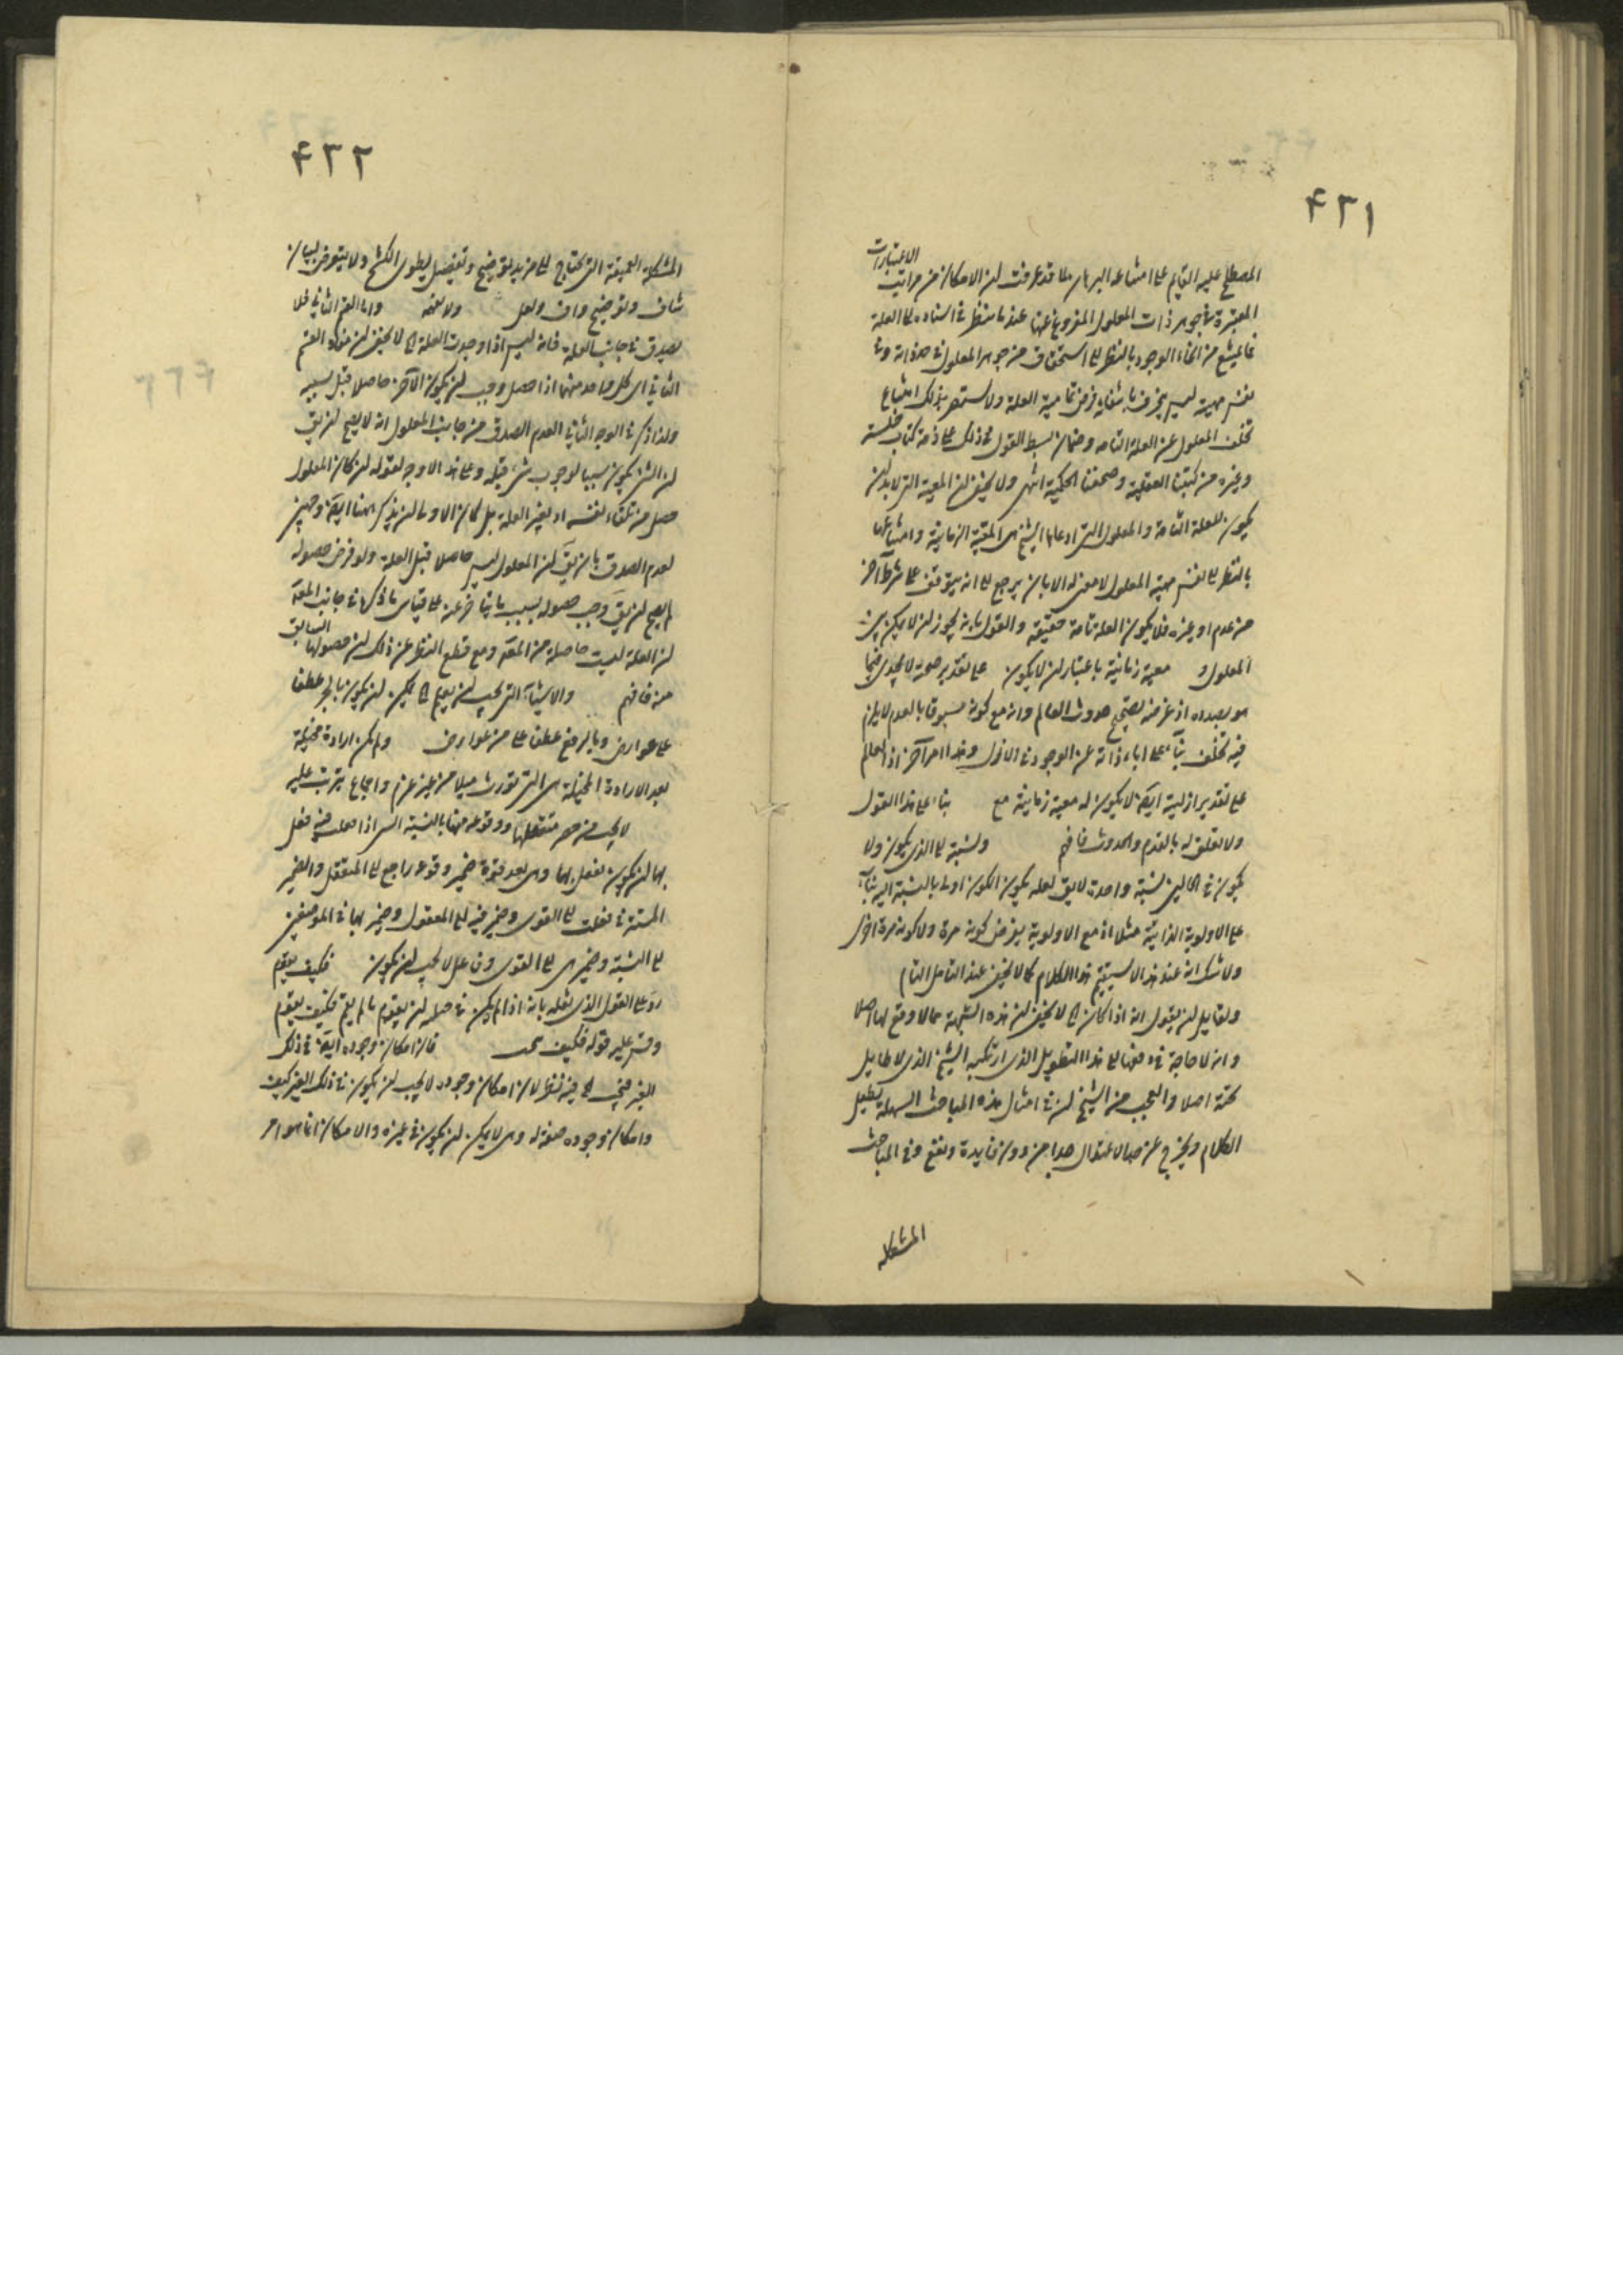 ۴۳۱
الاعتبارات
المصطلح عليه القايم على امتناعه البرهان لما قد عرفت ان الامكان من مراتب
المعتبرة في جوهر ذات المعلول المفروغ عنها عند ما ينظر في استناده الى العلة
فالممتنع من انحاء الوجود بالنظر الى استحقاق من جوهر المعلول في حد ذاته وفي
نفس مهيته ليس يخرق باستثنايه فرض تمامية العلة ولا يستضر بذلك امتناع
تخلف المعلول عن العلة التامة وضمان بسط القول في ذلك على ذمة كتاب خلسة
وغيره من كتبنا العقلية وصحفنا الحكمية انتهى ولا يخفى ان المعية التي لا بد ان
يكون للعلة التامة والمعلول التي ادعاها الشيخ هي المعية الزمانية وامتناعها
بالنظر الى نفس مهية المعلول لا معنى له الا بان يرجع الى انه يتوقف على شرط آخر
من عدم او غيره فلا يكون العلة تامة حقيقة والقول بانه يجوز ان لا يكون بين
المعلول و معية زمانية باعتبار ان لا يكون على تقدير صحته لا يجدي فيما
هو بصدده اذ غرضه تصحيح حدوث العالم وانه مع كونه مسبوقا بالعدم لا يلزم
فيه تخلف بناء على اباء ذاته عن الوجود في الازل وهذا امر آخر اذ العالم
على تقدير ازليته ايضا لا يكون له معية زمانية مع بناء على هذا القول
ولا تعلق له بالقدم والحدوث فافهم ونسبته الى الذي يكون ولا
يكون في الحالين نسبة واحدة لا يق لعله يكون الكون اولى بالنسبة اليه بناء
على الاولوية الذاتية مثلا اذ مع الاولوية يفرض كونه مرة ولا كونه مرة اخرى
ولا شك انه عند هذا لا يستقيم هذا الكلام كما لا يخفى عند التامل التام
ولقايل ان يقول انه اذا كان الخ لا يخفى ان هذه الشبهة مما لا وقع لها اصلا
وانه لا حاجة في دفعها الى هذا التطويل الذي ارتكبه الشيخ الذي لا طايل
تحته اصلا والعجب من الشيخ ان في امثال هذه المباحث السهلة يطيل
الكلام ويخرج عن حد الاعتدال جدا من دون فايدة ونفع وفي المباحث
المشكلة
۴۳۲
المشكلة العميقة التي تحتاج الى مزيد توضيح وتفصيل يطوى الكشح ولا يتعرض لبيان
شاف وتوضيح واف ولعل ولا نفقه واما القسم الثاني فلا
يصدق في جانب العلة فانه ليس اذا وجدت العلة الخ لا يخفى ان هذا القسم
الثاني اي كل واحد منهما اذا حصل وجب ان يكون الآخر حاصلا قبل بسببه
ولذا ذكر في الوجه الثاني لعدم الصدق من جانب المعلول انه لا يصح ان يق
ان الشئ يكون سببا لوجوب شئ قبله وعلى هذا لا وجه لقوله ان كان المعلول
حصل من تلقاء نفسه او بغير العلة بل كان الاولى ان يذكر ههنا ايضا وجهين
لعدم الصدق بان يق ان المعلول ليس حاصلا قبل العلة ولو فرض حصوله
لم يصح ان يق وجب حصوله بسبب ما يتاخر عنه على قياس ما ذكره في جانب المعية
ان العلة ليست حاصلة من المعية ومع قطع النظر عن ذلك ان حصولها السابق
منه فافهم والاشياء التي يجب ان يعلم الخ يمكن ان يكون بالجر عطفا
على عوارض وبالرفع عطف على من عوارض ولم يكن ارادة مخيلة
لعبر الارادة المخيلة هي التي تورث ميلا من غير عزم واجماع يترتب عليه
لا يجب من حضر منفعلها ووقوعه منها بالنسبة التي اذا حصلت فيه فعل
بها ان يكون يفعل بها وهي بعد قوة ضمير وقوعه راجع الى المنفعل والضمير
المستتر في فعلت الى القوى وضمير فيه الى المفعول وضمير بها في الموضعين
الى النسبة وضمير هي الى القوى وفاعل لا يجب ان يكون فكيف يقوم
رد على القول الذي نقله بانه اذا لم يكن في حاله ان يقوم ما لم يقم فكيف يقوم
وقس عليه قوله فكيف يجب فان امكان وجوده ايضا في ذلك
الغير فهي الخ فيه نظر لان امكان وجوده لا يجب ان يكون في ذلك الغير كيف
وامكان وجوده صفة له وهي لا يمكن ان يكون في غيره والامكان انما هو امر